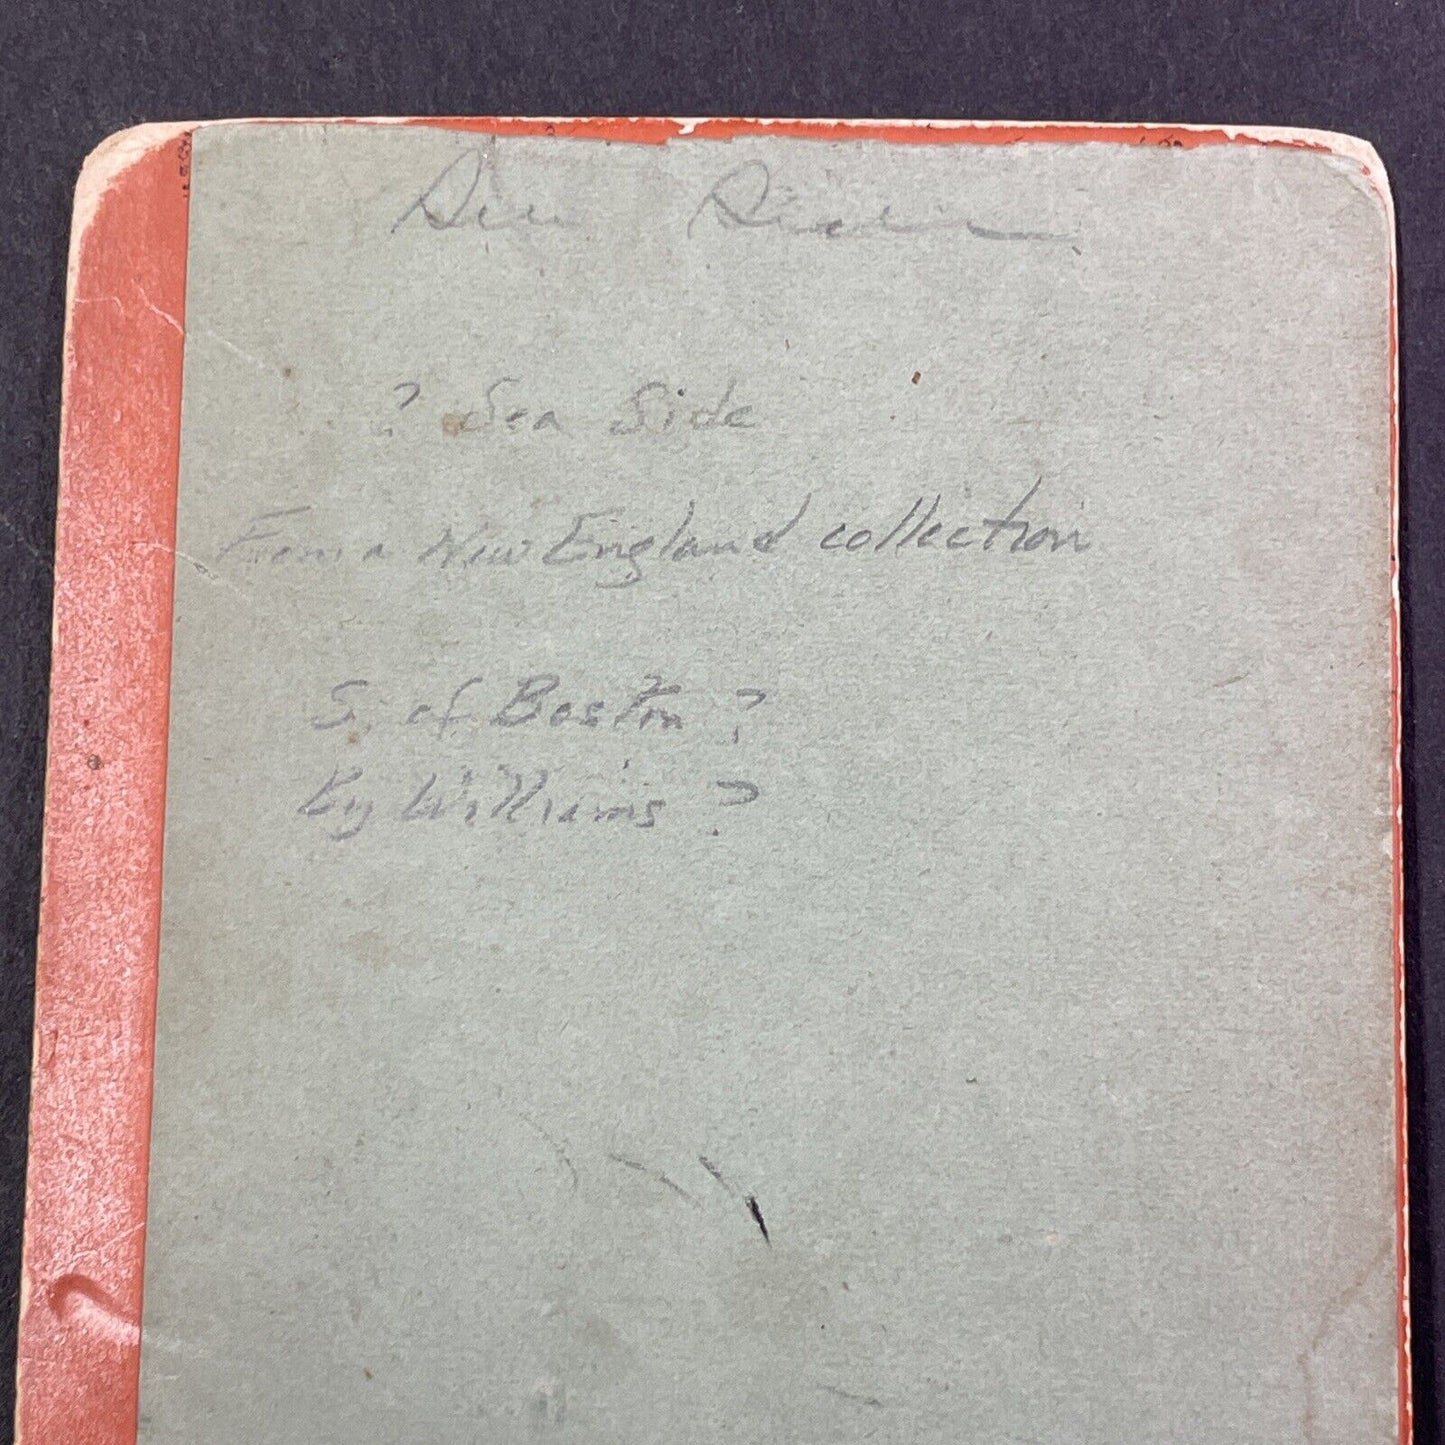 ? Sea Side
From a New England collection
S. of Boston ?
By Williams ?